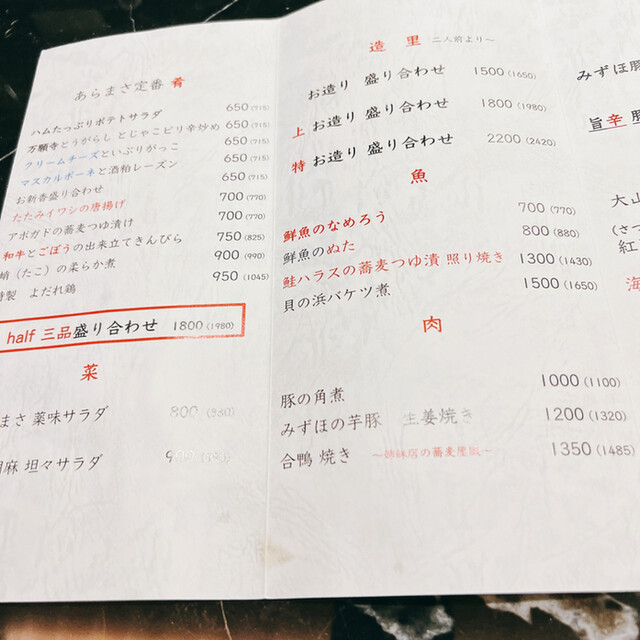 あらまさ定番 肴
ハムたっぷりポテトサラダ 650(715)
万願寺とうがらし とじゃこピリ辛炒め 650(715)
クリームチーズといぶりがっこ 650(715)
マスカルポーネと酒粕レーズン 650(715)
お新香盛り合わせ 650(715)
たたみイワシの唐揚げ 700(770)
アボガドの蕎麦つゆ漬け 700(770)
和牛とごぼうの出来立てきんぴら 750(825)
蛸(たこ)の柔らか煮 900(990)
特製 よだれ鶏 950(1045)
half 三品盛り合わせ 1800(1980)
菜
まさ 薬味サラダ 800(880)
胡麻 坦々サラダ
造里 二人前より～
お造り 盛り合わせ 1500(1650)
上 お造り 盛り合わせ 1800(1980)
特 お造り 盛り合わせ 2200(2420)
魚
鮮魚のなめろう 700(770)
鮮魚のぬた 800(880)
鮭ハラスの蕎麦つゆ漬 照り焼き 1300(1430)
貝の浜バケツ煮 1500(1650)
肉
豚の角煮 1000(1100)
みずほの芋豚 生姜焼き 1200(1320)
合鴨 焼き ～姉妹店の蕎麦屋風～ 1350(1485)
みずほ豚
旨辛豚
大山
(さつ
紅
海